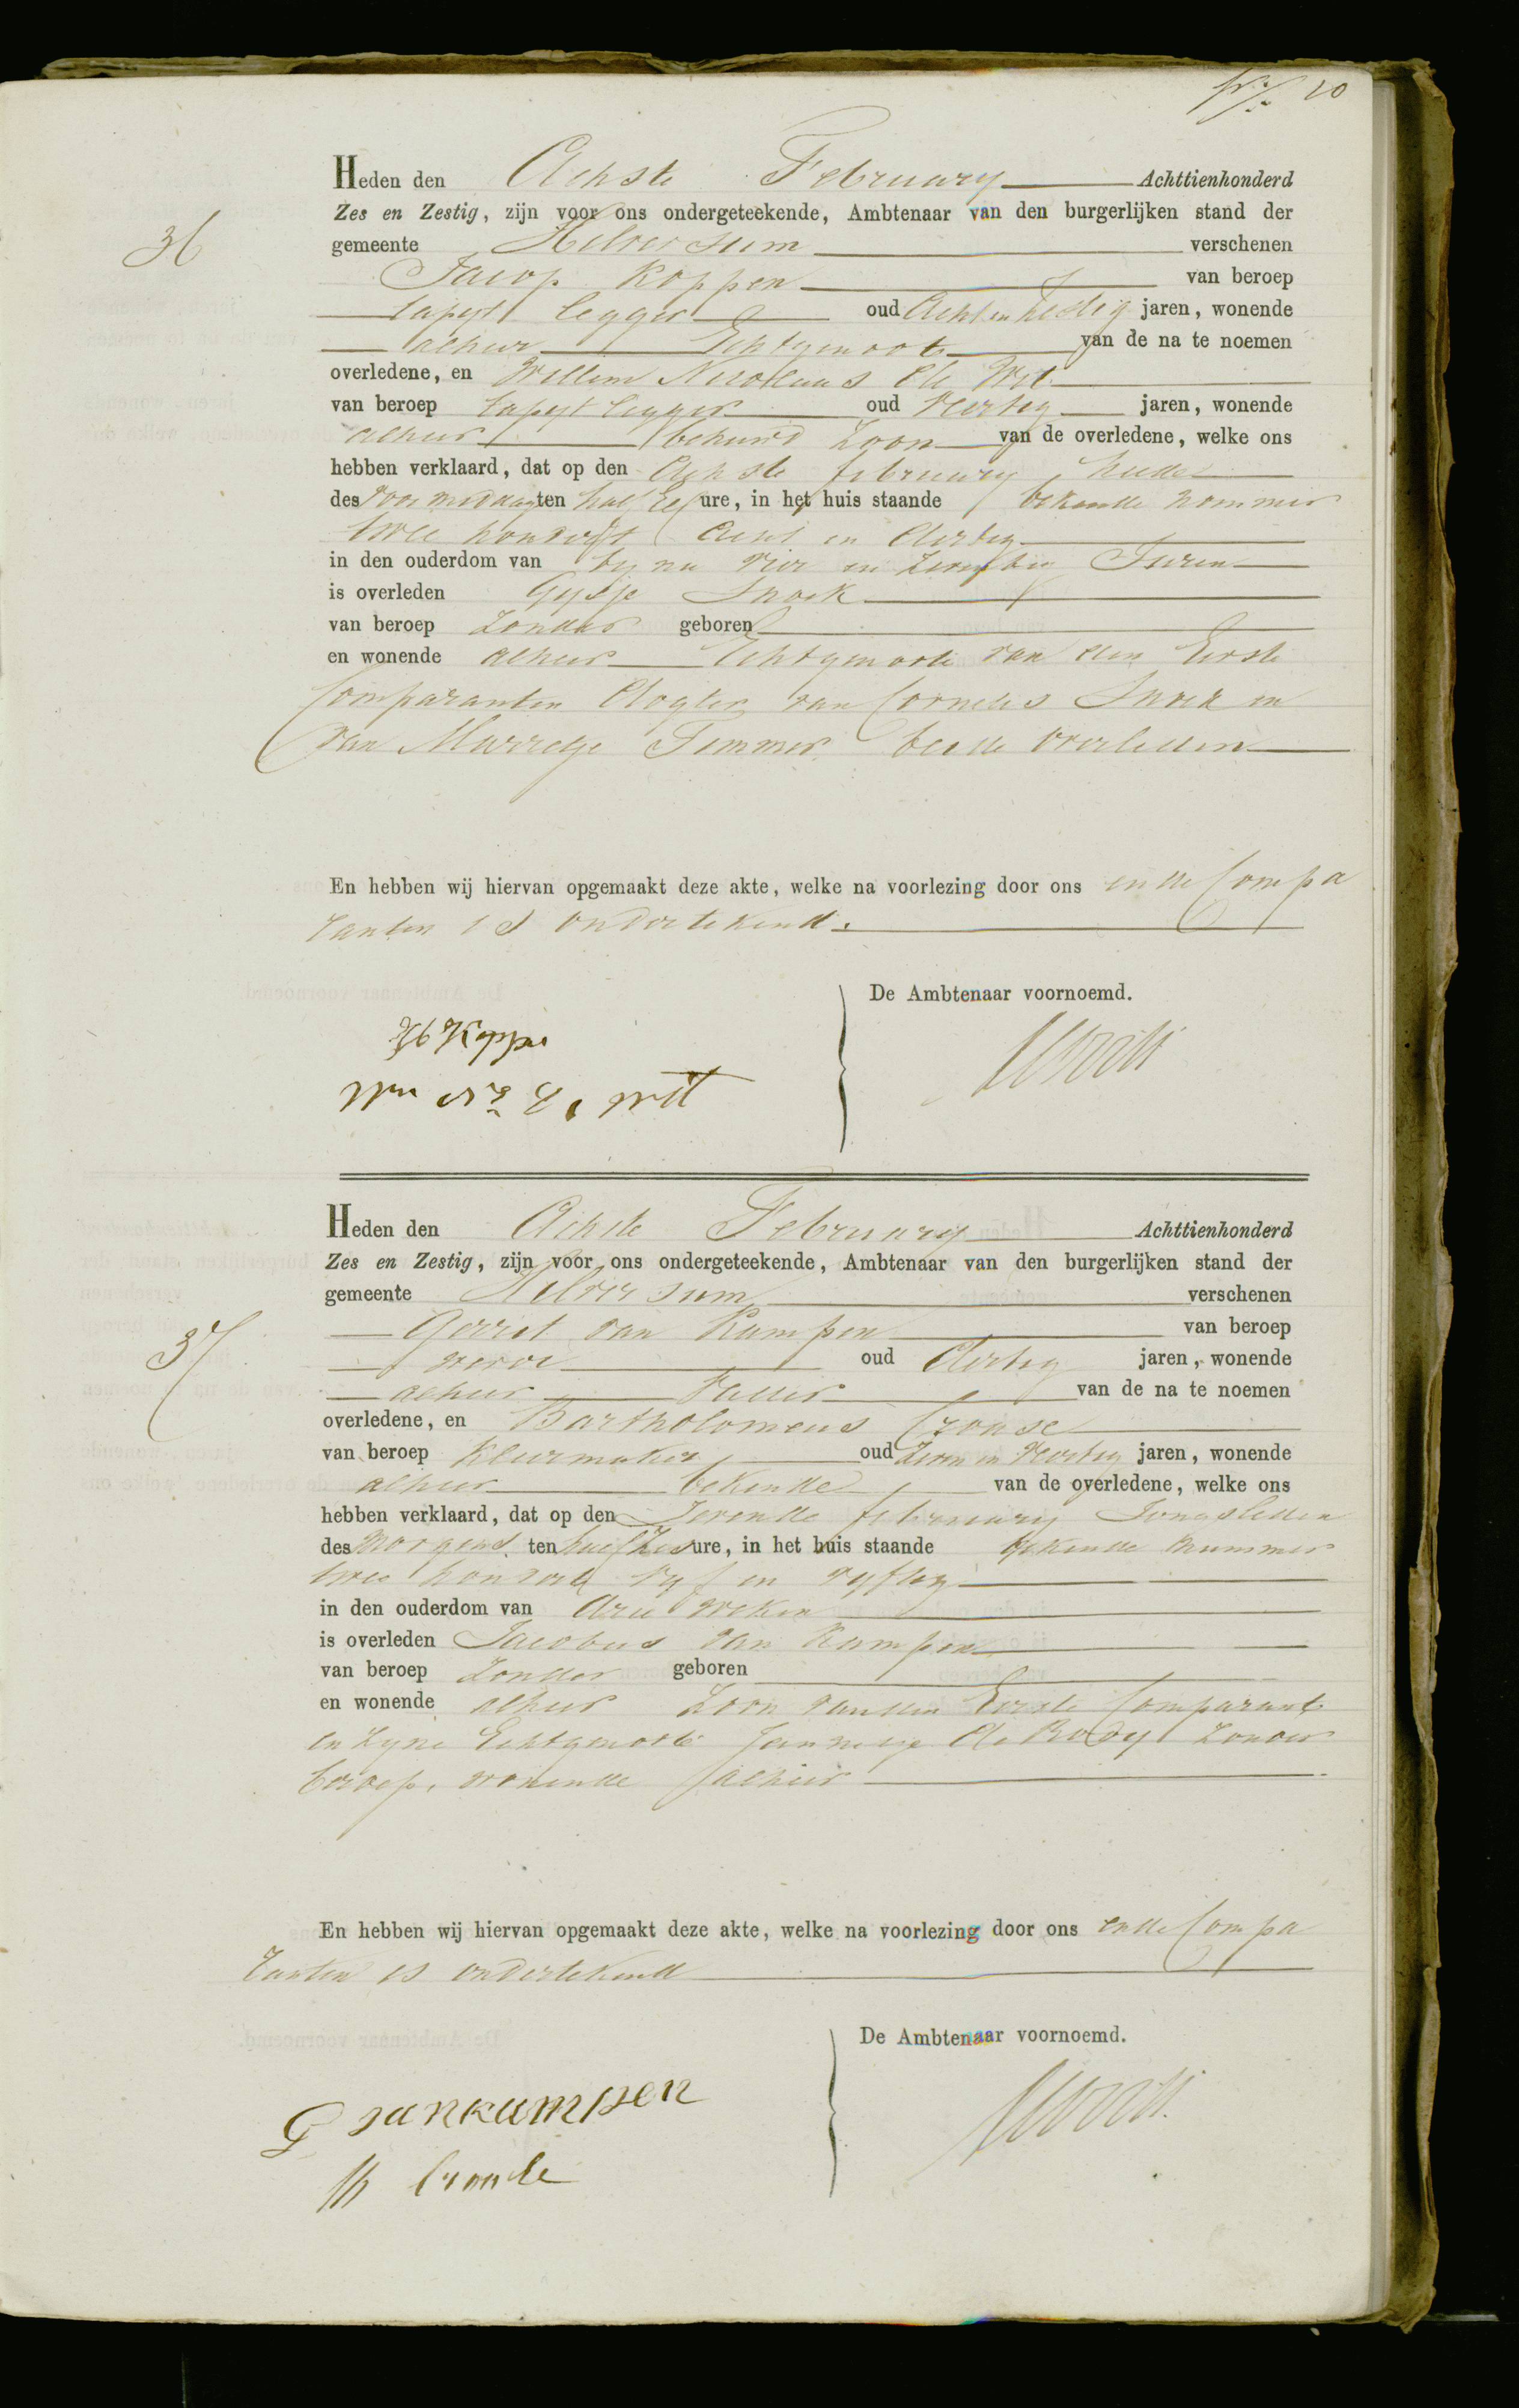 20
36
Heden den Achste February Achttienhonderd
Zes en Zestig, zijn voor ons ondergeteekende, Ambtenaar van den burgerlijken stand der
gemeente Hilversum verschenen
Jacop Koppen van beroep
tapyt legger oud Acht en Zestig jaren, wonende
alhier Echtgenoot van de na te noemen
overledene, en Willem Nicolaas de Wit
van beroep tapyt legger oud veertig jaren, wonende
alhier behuwd Zoon van de overledene, welke ons
hebben verklaard, dat op den Achste february heden
des voormiddag ten half Elf ure, in het huis staande bekende nommer
twee honderd Acht en dertig
in den ouderdom van byna vier en Zeventig Jaren
is overleden Gysje Snoek
van beroep Zonder geboren
en wonende alhier Echtgenoote van den Eerste
Comparanten Dogter van Cornelis Snoek en
van Marretje Timmer beide overleden
En hebben wij hiervan opgemaakt deze akte, welke na voorlezing door ons en de Compa
ranten is ondertekend.
De Ambtenaar voornoemd.
Koppe
Wm Ns De Wit
Heden den Achste February Achttienhonderd
Zes en Zestig, zijn voor ons ondergeteekende, Ambtenaar van den burgerlijken stand der
gemeente Hilversum verschenen
37
Gerret van Kampen van beroep
wever oud dertig jaren, wonende
alhier Vader van de na te noemen
overledene, en Bartholomeus Cronse
van beroep Kleermaker oud Zeven en Veertig jaren, wonende
alhier bekende van de overledene, welke ons
hebben verklaard, dat op den Zevende february Jongsleden
des morgens ten half Zes ure, in het huis staande bekende nummer
twee honderd vyf en vyftig
in den ouderdom van drie weken
is overleden Jacobus van Kampen
van beroep Zonder geboren
en wonende alhier Zoon van den Eerste Comparant
en Zyne Echtgenoote Jannetje de Rooy Zonder
beroep, wonende alhier
En hebben wij hiervan opgemaakt deze akte, welke na voorlezing door ons en de Compa
ranten is ondertekend
De Ambtenaar voornoemd.
G van kampen
Cronse